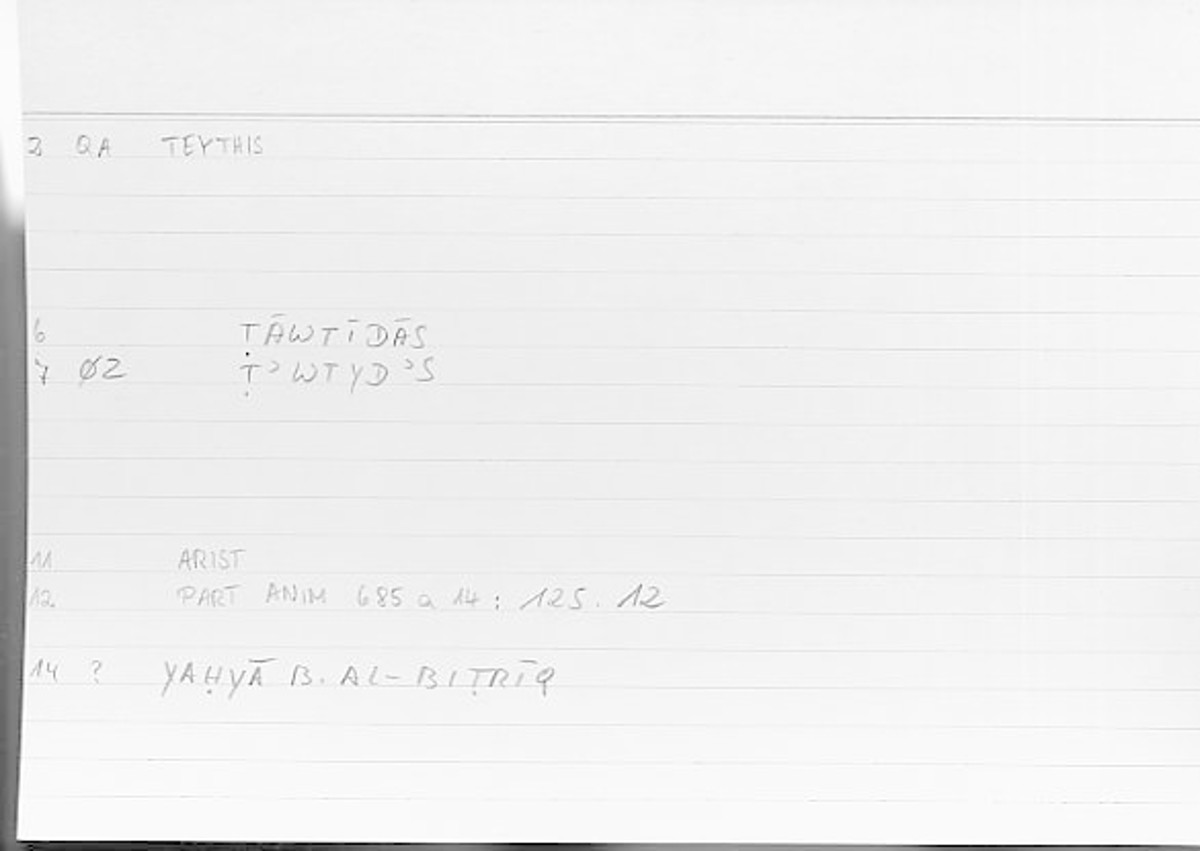 2 QA TEYTHIS
6 ṬĀWTĪDĀS
7 ØZ Ṭ᾿WTYD᾿S
11 ARIST
12 PART ANIM 685 a 14 : 125. 12
14 ? YAḤYĀ B. AL-BIṬRĪQ